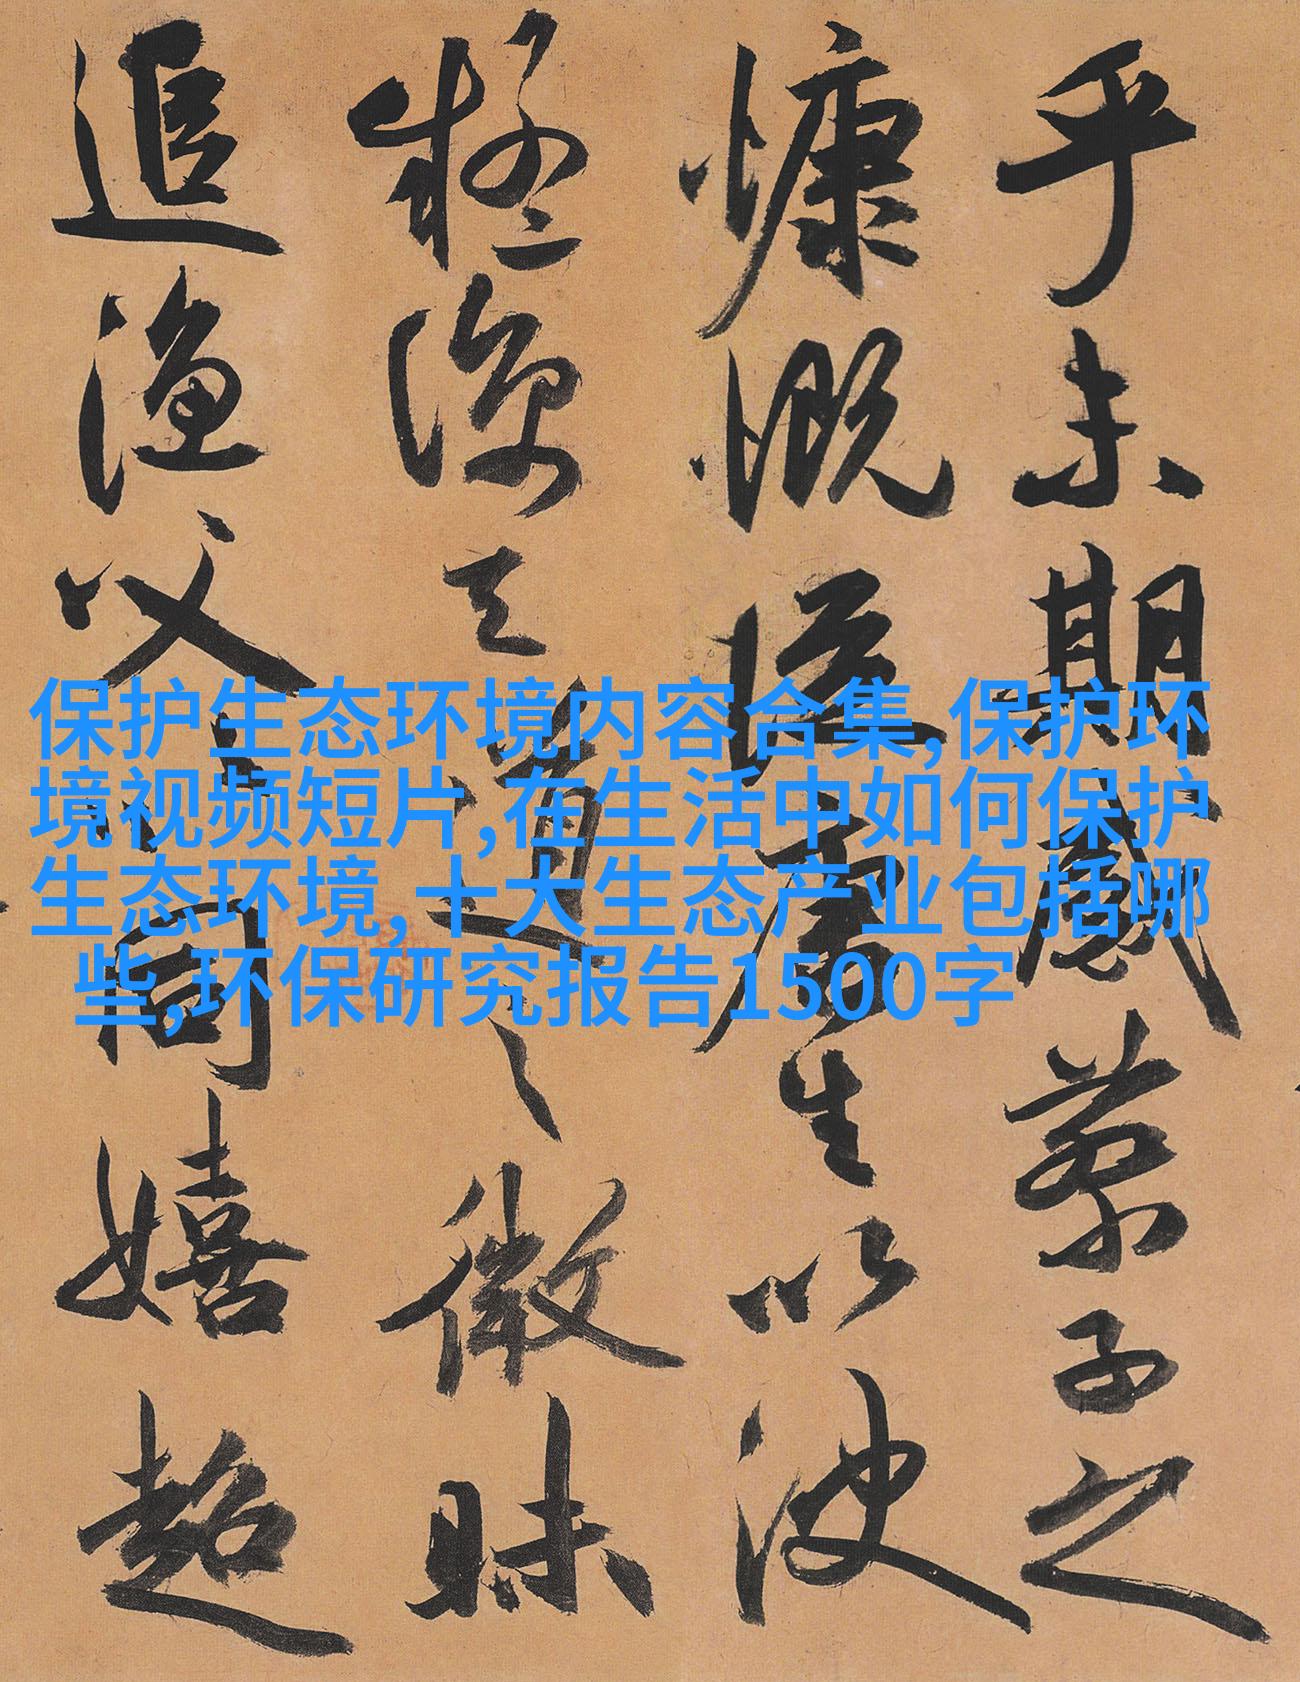 乎未期感蔡子之
慷慨從唐生以決
疑諒天道之微昧
追漁父以同嬉超
保护生态环境内容合集,保护环
境视频短片,在生活中如何保护
生态环境,十大生态产业包括哪
些,环保研究报告1500字